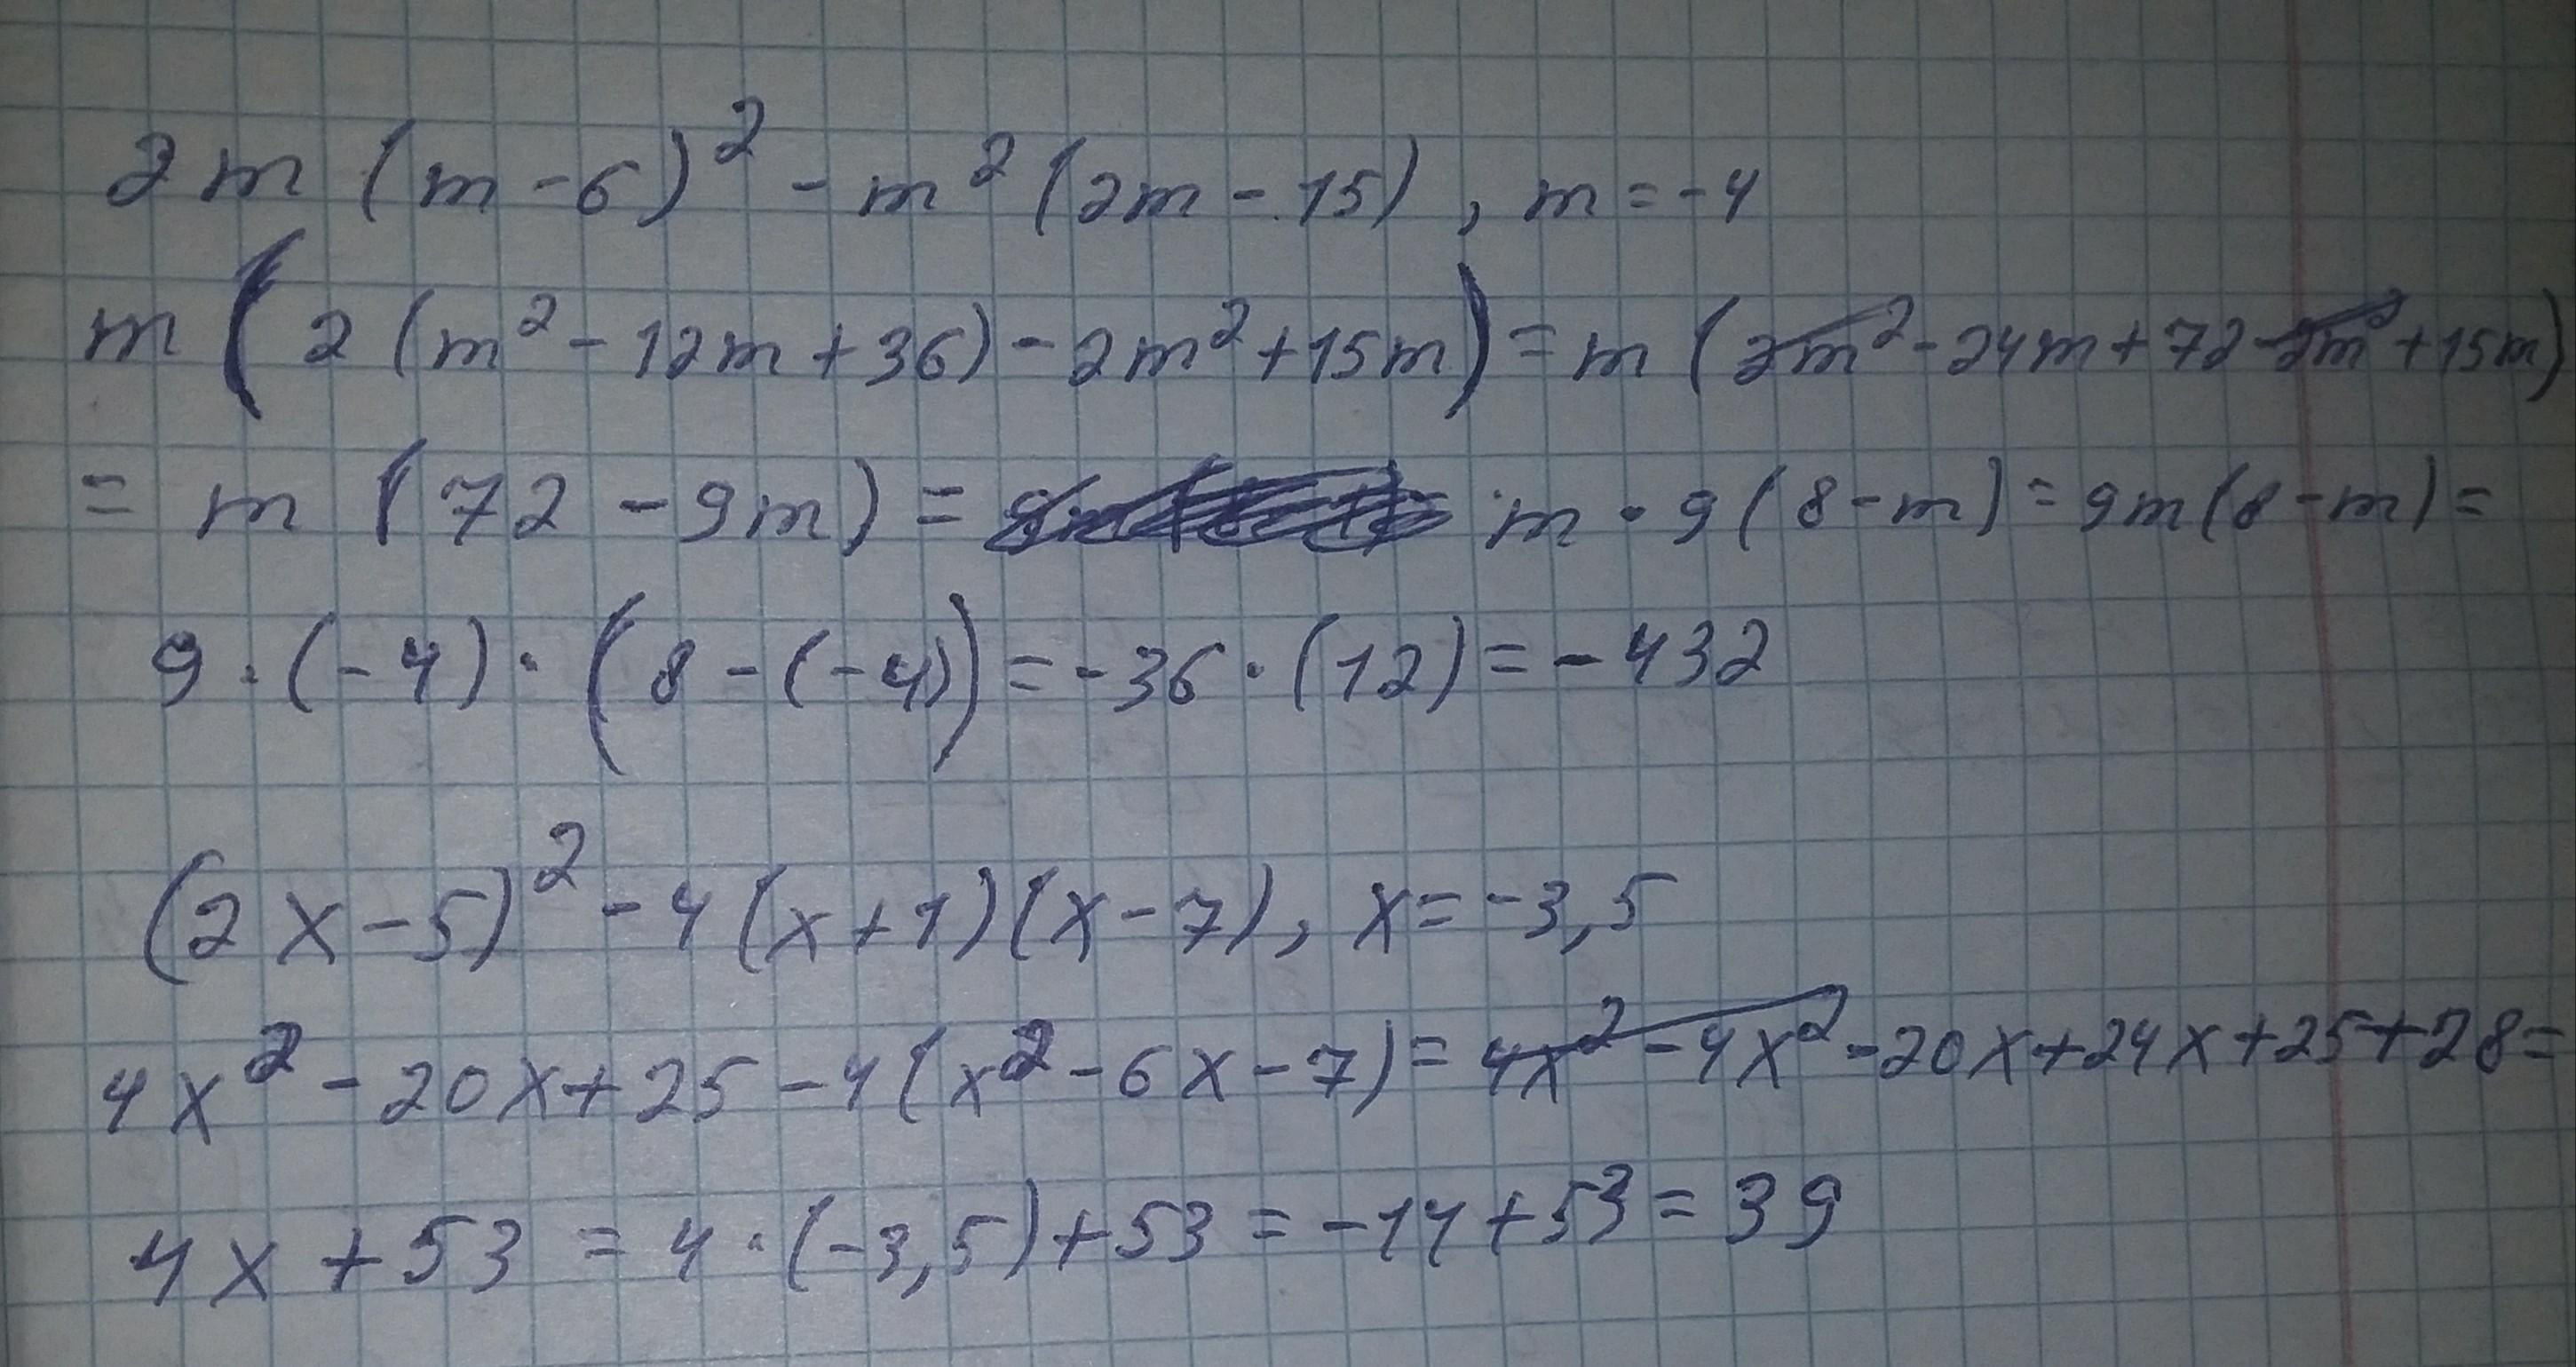 2m (m-6)² - m² (2m - 15), m = -4
m (2 (m² - 12m + 36) - 2m² + 15m) = m (2m² - 24m + 72 - 2m² + 15m)
= m (72 - 9m) = m · 9 (8 - m) = 9m (8 - m) =
9 · (-4) · (8 - (-4)) = -36 · (12) = -432
(2x - 5)² - 4 (x + 1)(x - 7), x = -3,5
4x² - 20x + 25 - 4 (x² - 6x - 7) = 4x² - 4x² - 20x + 24x + 25 + 28 =
4x + 53 = 4 · (-3,5) + 53 = -14 + 53 = 39